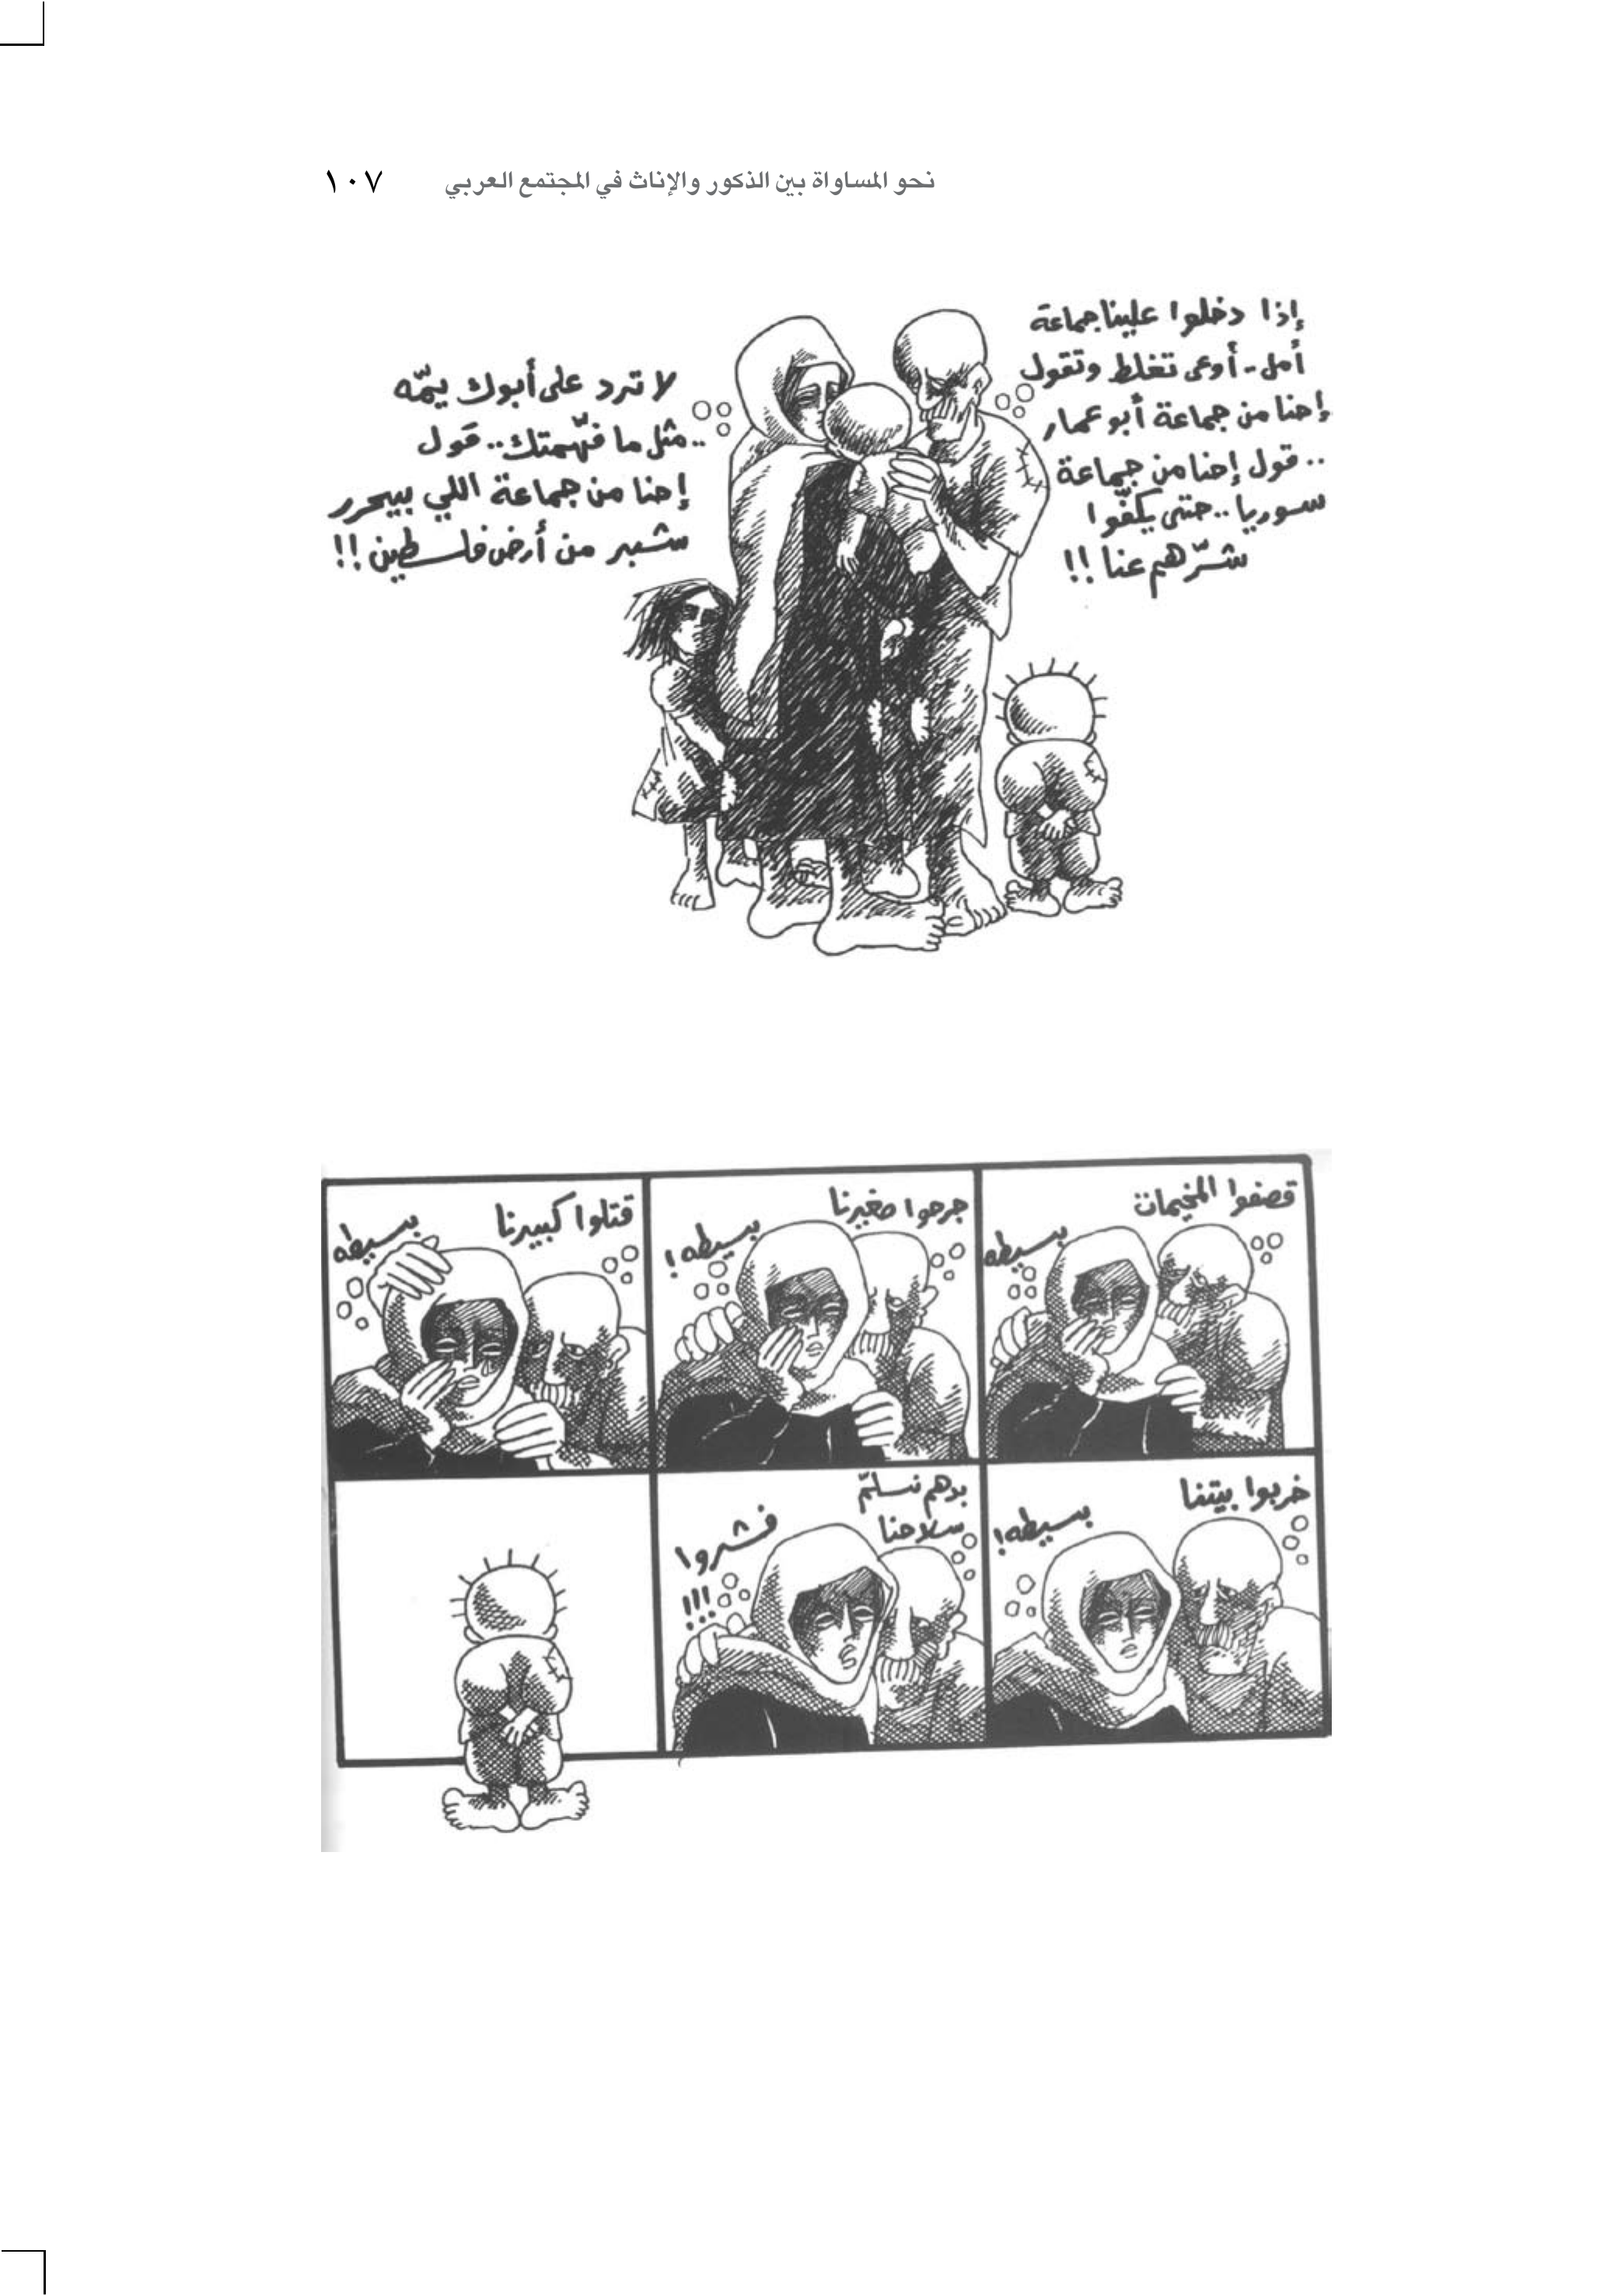 نحو المساواة بين الذكور والإناث في المجتمع العربي ١٠٧
إذا دخلوا علينا جماعة
أمل - أوعى تغلط وتقول
إحنا من جماعة أبو عمار
.. قول إحنا من جماعة
سوريا .. حتى يكفّوا
شرّهم عنا !!
لا ترد على أبوك يمّه
.. مثل ما فهّمتك .. قول
إحنا من جماعة اللي بيحرر
شبر من أرض فلسطين !!
قصفوا المخيمات
بسيطه
جرحوا صغيرنا
بسيطه !
قتلوا كبيرنا
بسيطه
خربوا بيتنا
بسيطه !
بدهم نسلّم
سلاحنا
فشروا
!!!